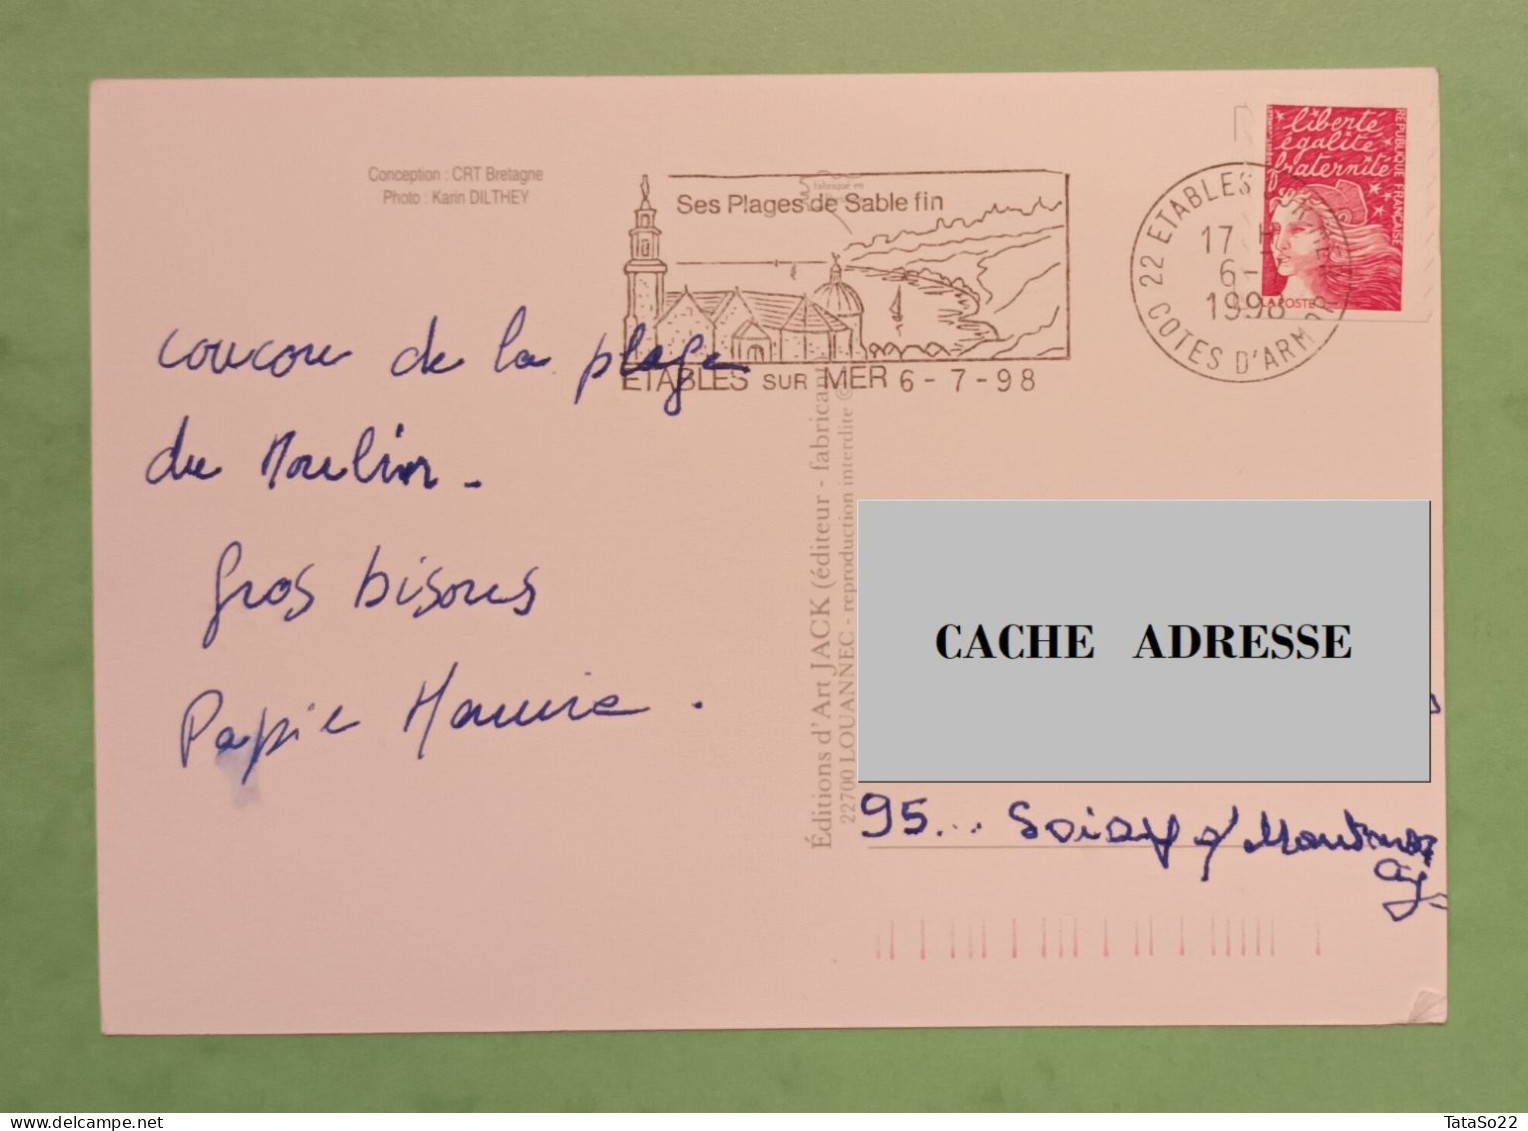 Conception : CRT Bretagne
Photo : Karin DILTHEY
Ses Plages de Sable fin
fabriqué en
ETABLES SUR MER 6-7-98
22 ETABLES SUR MER
17 H
6-
1998
COTES D'ARMOR
liberté
égalité
fraternité
REPUBLIQUE FRANÇAISE
LA POSTE
coucou de la plage
du Moulin.
Gros bisous
Papie Mamie.
Éditions d'Art JACK (éditeur - fabricant
22700 LOUANNEC - reproduction interdite ©
CACHE ADRESSE
95... Soisy s/ Montmo
cy
TataSo22